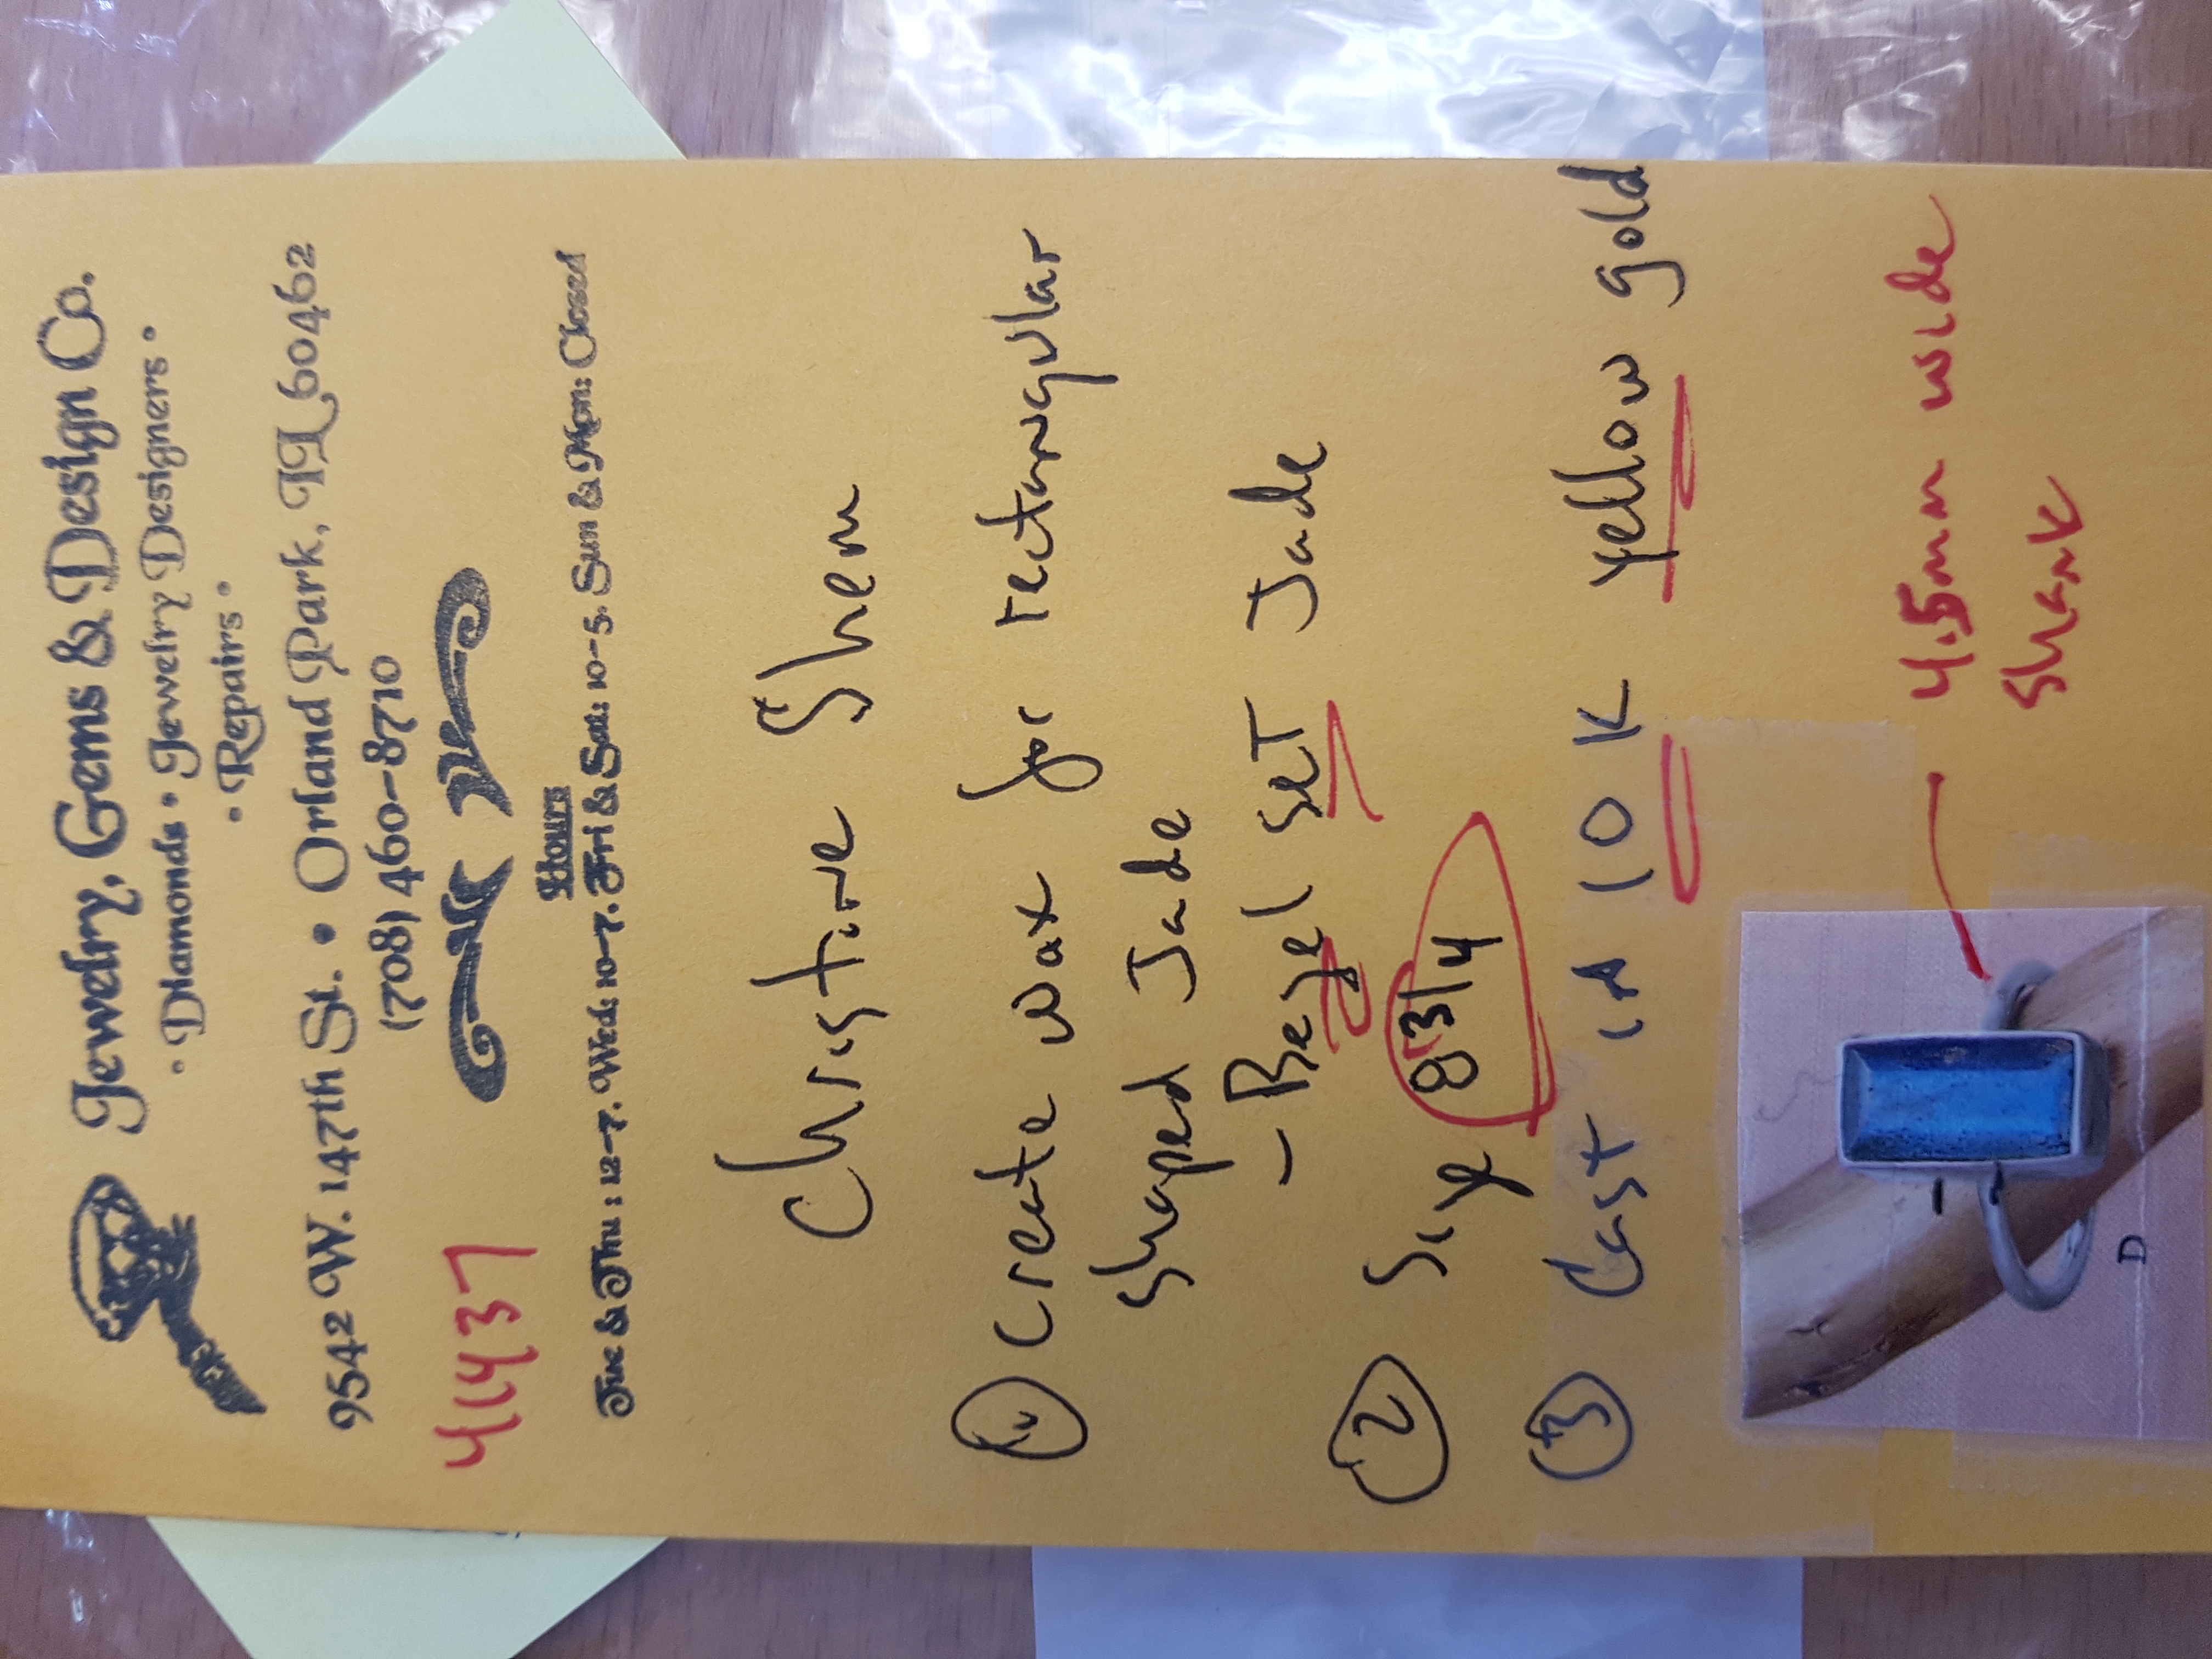 Jewelry, Gems & Design Co.
• Diamonds • Jewelry Designers •
• Repairs •
9542 W. 147th St. • Orland Park, IL 60462
(708) 460-8710
41437
Hours
Tue & Thu : 12-7. Wed: 10-7. Fri & Sat: 10-5. Sun & Mon: Closed
Christine Shem
1 Create wax for rectangular
shaped Jade
- Bezel set Jade
2 Size 8 3/4
3 Cast in 10 K yellow gold
4.5mm wide
shank
D